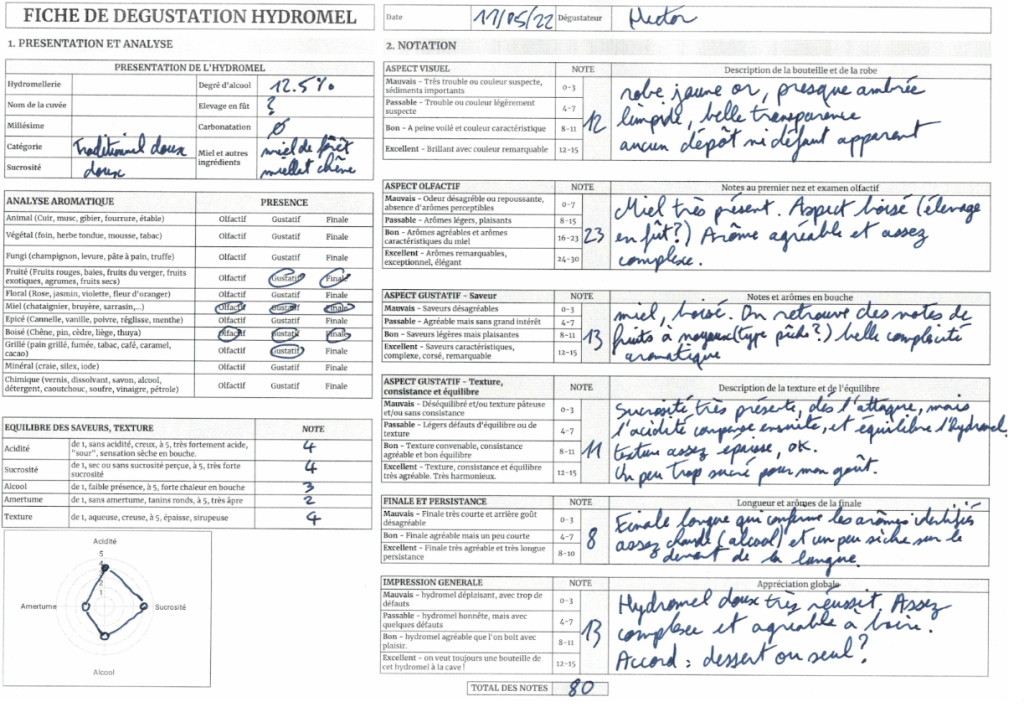 FICHE DE DEGUSTATION HYDROMEL
Date 17/05/22 Dégustateur Hector
1. PRESENTATION ET ANALYSE
PRESENTATION DE L'HYDROMEL
Hydromellerie Degré d'alcool 12.5%
Nom de la cuvée Elevage en fût ?
Millésime Carbonatation Ø
Catégorie Traditionnel doux Miel et autres ingrédients miel de forêt
Sucrosité doux miellat chêne
ANALYSE AROMATIQUE PRESENCE
Animal (Cuir, musc, gibier, fourrure, étable) Olfactif Gustatif Finale
Végétal (foin, herbe tondue, mousse, tabac) Olfactif Gustatif Finale
Fungi (champignon, levure, pâte à pain, truffe) Olfactif Gustatif Finale
Fruité (Fruits rouges, baies, fruits du verger, fruits
exotiques, agrumes, fruits secs) Olfactif Gustatif Finale
Floral (Rose, jasmin, violette, fleur d'oranger) Olfactif Gustatif Finale
Miel (chataignier, bruyère, sarrasin,...) Olfactif Gustatif Finale
Epicé (Cannelle, vanille, poivre, réglisse, menthe) Olfactif Gustatif Finale
Boisé (Chêne, pin, cèdre, liège, thuya) Olfactif Gustatif Finale
Grillé (pain grillé, fumée, tabac, café, caramel,
cacao) Olfactif Gustatif Finale
Minéral (craie, silex, iode) Olfactif Gustatif Finale
Chimique (vernis, dissolvant, savon, alcool,
détergent, caoutchouc, soufre, vinaigre, pétrole) Olfactif Gustatif Finale
EQUILIBRE DES SAVEURS, TEXTURE NOTE
Acidité de 1, sans acidité, creux, à 5, très fortement acide,
"sour", sensation sèche en bouche. 4
Sucrosité de 1, sec ou sans sucrosité perçue, à 5, très forte
sucrosité 4
Alcool de 1, faible présence, à 5, forte chaleur en bouche 3
Amertume de 1, sans amertume, tanins ronds, à 5, très âpre 2
Texture de 1, aqueuse, creuse, à 5, épaisse, sirupeuse 4
Acidité
5
4
3
2
1
Amertume Sucrosité
Alcool
2. NOTATION
ASPECT VISUEL NOTE Description de la bouteille et de la robe
Mauvais - Très trouble ou couleur suspecte,
sédiments importants 0-3
Passable - Trouble ou couleur légèrement
suspecte 4-7
Bon - A peine voilé et couleur caractéristique 8-11
Excellent - Brillant avec couleur remarquable 12-15
12
robe jaune or, presque ambrée
limpide, belle transparence
aucun dépôt ni défaut apparent
ASPECT OLFACTIF NOTE Notes au premier nez et examen olfactif
Mauvais - Odeur désagréble ou repoussante,
absence d'arômes perceptibles 0-7
Passable - Arômes légers, plaisants 8-15
Bon - Arômes agréables et arômes
caractéristiques du miel 16-23
Excellent - Arômes remarquables,
exceptionnel, élégant 24-30
23
Miel très présent. Aspect boisé (élevage
en fût?) Arôme agréable et assez
complexe.
ASPECT GUSTATIF - Saveur NOTE Notes et arômes en bouche
Mauvais - Saveurs désagréables 0-3
Passable - Agréable mais sans grand intérêt 4-7
Bon - Saveurs légères mais plaisantes 8-11
Excellent - Saveurs caractéristiques,
complexe, corsé, remarquable 12-15
13
miel, boisé. On retrouve des notes de
fruits à noyaux (type pêche?) belle complexité
aromatique
ASPECT GUSTATIF - Texture,
consistance et équilibre NOTE Description de la texture et de l'équilibre
Mauvais - Déséquilibré et/ou texture pâteuse
et/ou sans consistance 0-3
Passable - Légers défauts d'équilibre ou de
texture 4-7
Bon - Texture convenable, consistance
agréable et bon équilibre 8-11
Excellent - Texture, consistance et équilibre
très agréable. Très harmonieux. 12-15
11
Sucrosité très présente, dès l'attaque, mais
l'acidité compense ensuite, et équilibre l'hydromel.
texture assez épaisse, ok.
Un peu trop sucré pour mon goût.
FINALE ET PERSISTANCE NOTE Longueur et arômes de la finale
Mauvais - Finale très courte et arrière goût
désagréable 0-3
Bon - Finale agréable mais un peu courte 4-7
Excellent - Finale très agréable et très longue
persistance 8-10
8
Finale longue qui confirme les arômes identifiés
assez chaude (alcool) et un peu sèche sur le
devant de la langue.
IMPRESSION GENERALE NOTE Appréciation globale
Mauvais - hydromel déplaisant, avec trop de
défauts 0-3
Passable - hydromel honnête, mais avec
quelques défauts 4-7
Bon - hydromel agréable que l'on boit avec
plaisir. 8-11
Excellent - on veut toujours une bouteille de
cet hydromel à la cave ! 12-15
13
Hydromel doux très réussit. Assez
complexe et agréable à boire.
Accord : dessert ou seul?
TOTAL DES NOTES 80